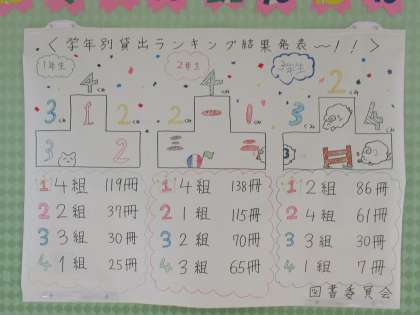 ＜学年別貸出ランキング結果発表〜!!＞
1年生
4くみ
3くみ 1 2くみ
3 2
2年生
4くみ
2くみ 一 1くみ
二
三
3年生
2くみ
3くみ 4くみ
3
1 4組 119冊
2 2組 37冊
3 3組 30冊
4 1組 25冊
1 4組 138冊
2 1組 115冊
3 2組 70冊
4 3組 65冊
1 2組 86冊
2 4組 61冊
3 3組 30冊
4 1組 7冊
図書委員会